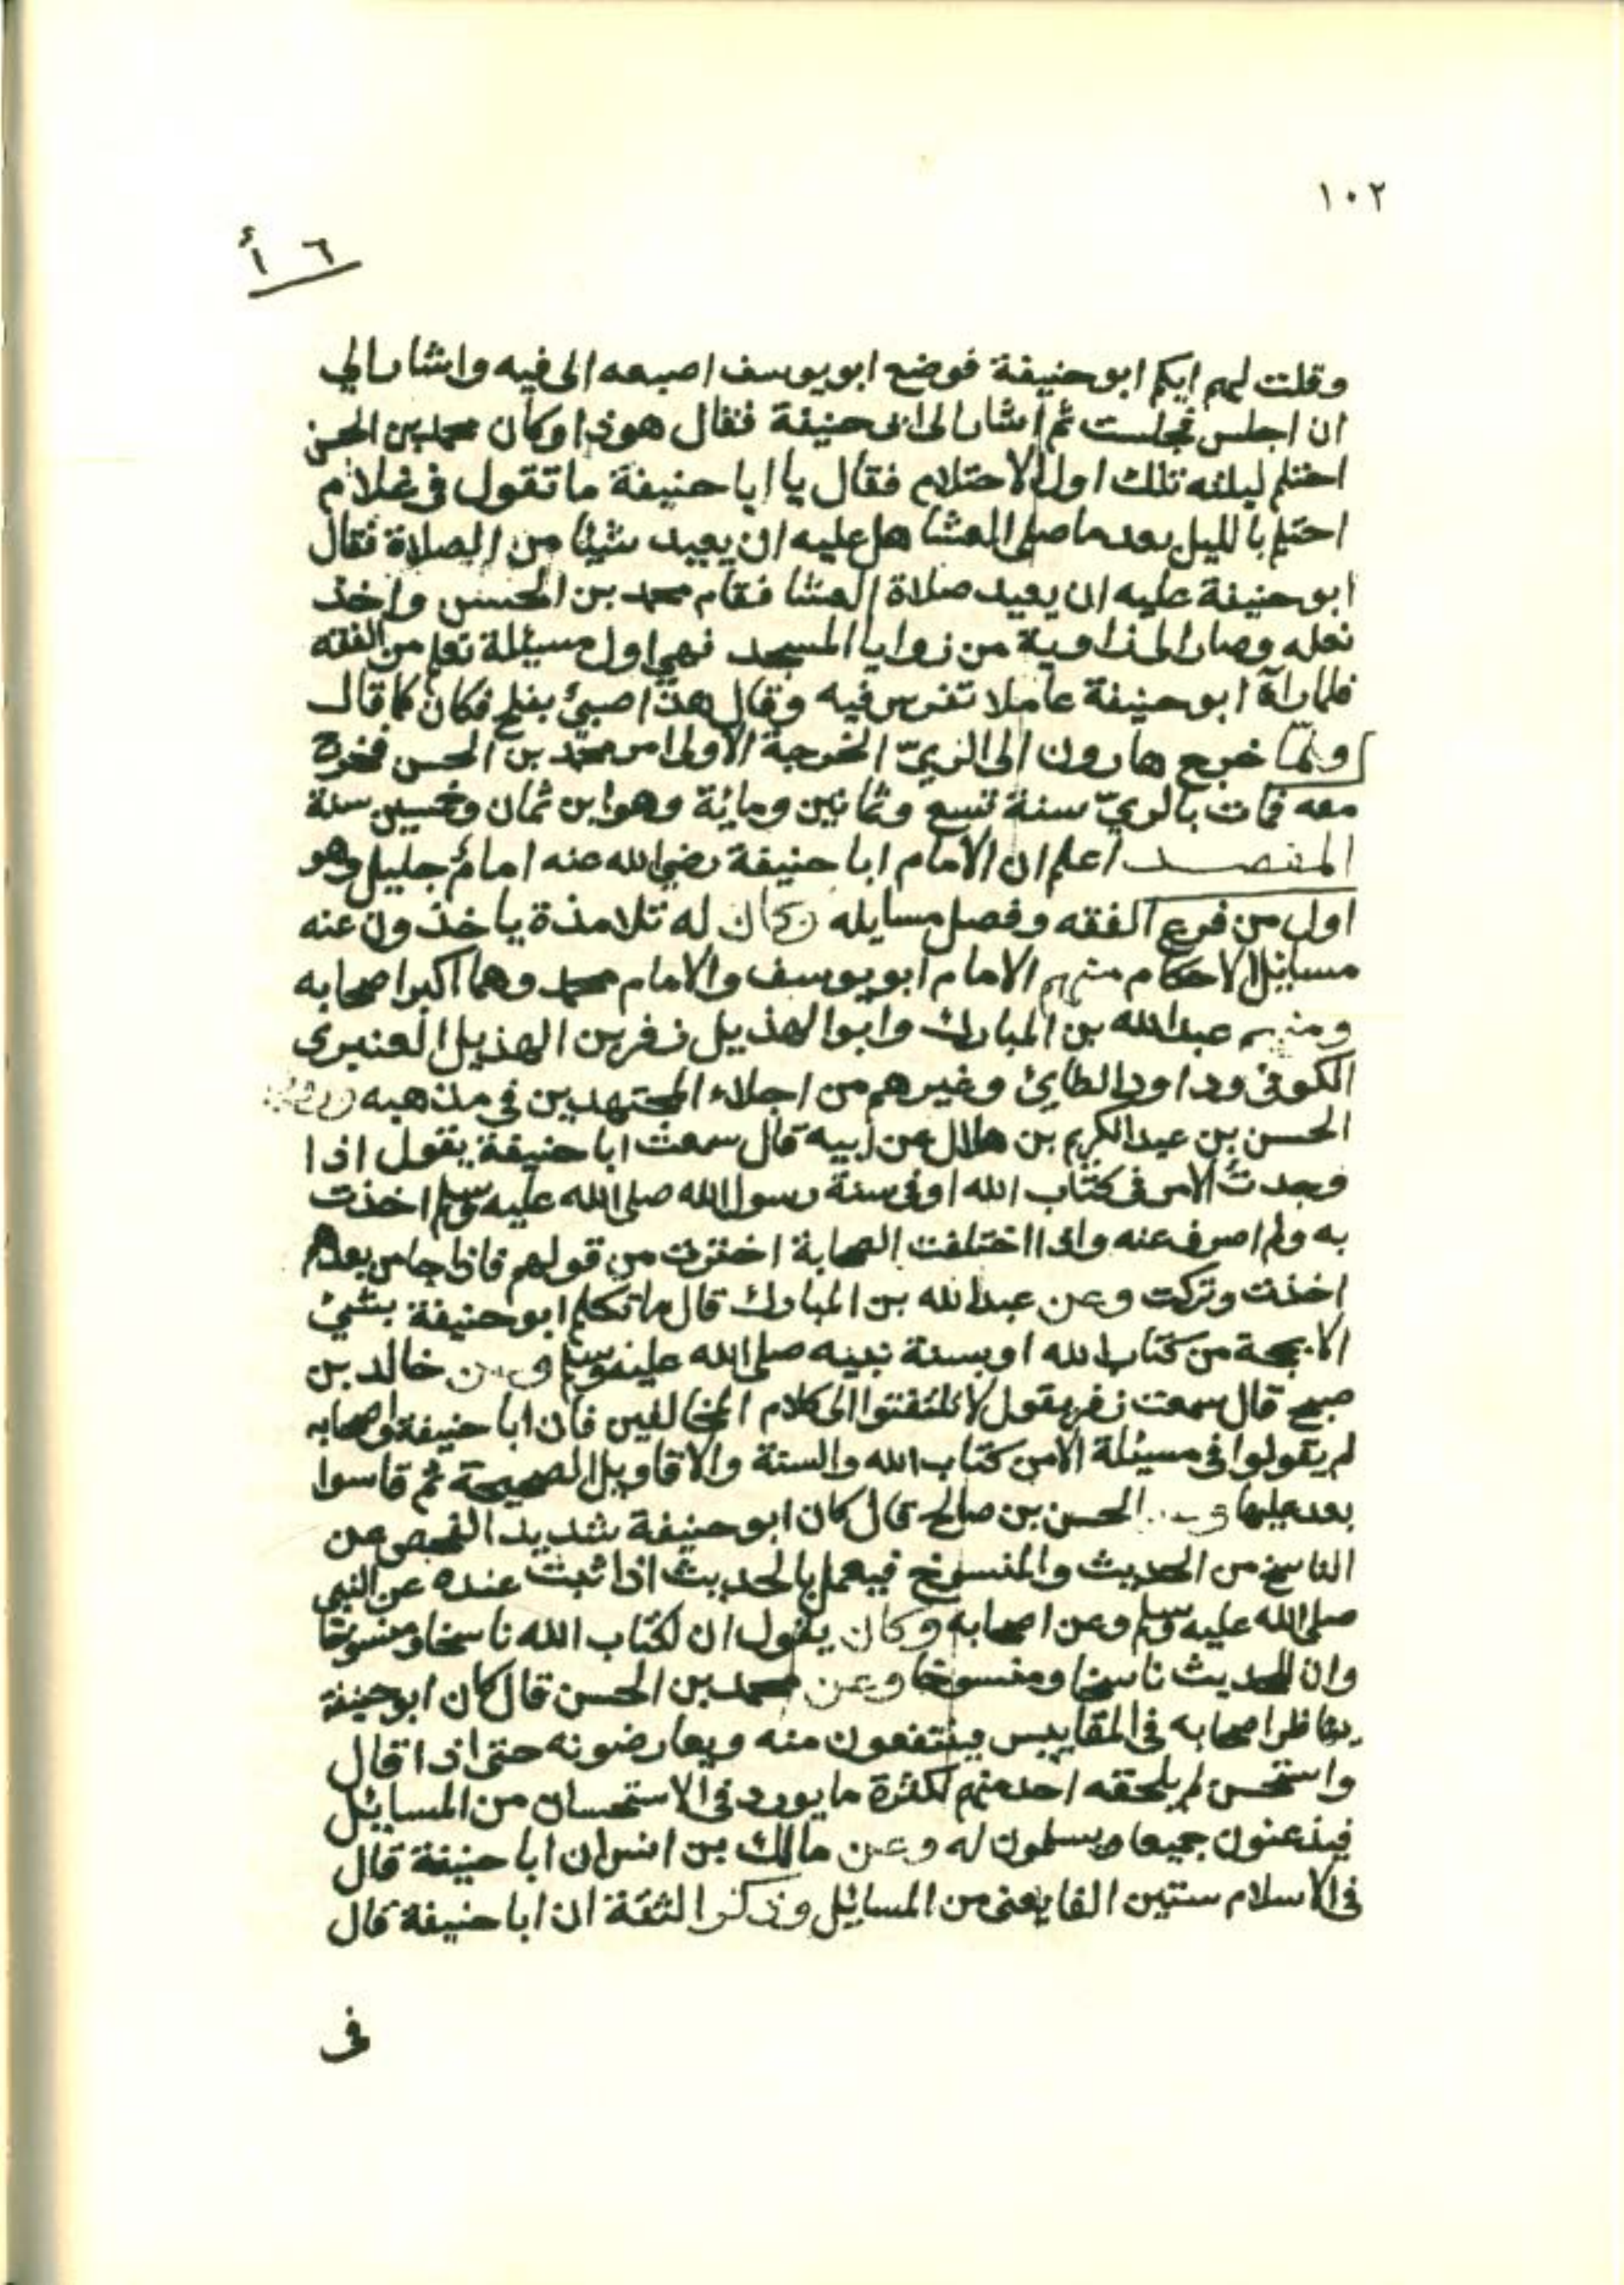 ١٠٢
٦ أ
وقلت لهم ايكم ابو حنيفة فوضع ابو يوسف اصبعه الى فيه واشار الي
ان اجلس فجلست ثم اشار الى ابى حنيفة فقال هو ذا وكان محمد بن الحسن
احتلم ليلته تلك اول الاحتلام فقال يا ابا حنيفة ما تقول فى غلام
احتلم بالليل بعد ما صلى العشا هل عليه ان يعيد شيئا من الصلاة فقال
ابو حنيفة عليه ان يعيد صلاة العشا فقام محمد بن الحسن واخذ
نعله وصار الى زاوية من زوايا المسجد فهي اول مسيلة تعلم من الفقه
فلما رآه ابو حنيفة عاملا تفرس فيه وقال هذا صبيّ يفلح فكان كما قال
ولمّا خرج هارون الى الريّ الخرجة الاولى امر محمّد بن الحسن فخرج
معه فمات بالريّ سنة تسع وثمانين ومائة وهو ابن ثمان وخمسين سنة
المقصد اعلم ان الامام ابا حنيفة رضي الله عنه امامٌ جليل وهو
اول من فرع الفقه وفصل مسايله وكان له تلامذة ياخذون عنه
مسائل الاحكام منهم الامام ابو يوسف والامام محمد وهما اكبر اصحابه
ومنهم عبد الله بن المبارك وابو الهذيل زفر بن الهذيل العنبرى
الكوفى وداود الطايئ وغيرهم من اجلاء المجتهدين في مذهبه
الحسن بن عبد الكريم بن هلال عن ابيه قال سمعت ابا حنيفة يقول اذا
وجدت الامر فى كتاب الله او فى سنة رسول الله صلى الله عليه وسلم اخذت
به ولم اصرف عنه واذا اختلفت الصحابة اخترت من قولهم فاذا جا من بعدهم
اخذت وتركت وعن عبد الله بن المبارك قال ما تكلم ابو حنيفة بشيئ
الا بحجة من كتاب الله او بسنة نبيه صلى الله عليه وسلم وعن خالد بن
صبيح قال سمعت زفر يقول لا تلتفتوا الى كلام المخالفين فان ابا حنيفة واصحابه
لم يقولوا فى مسيئلة الا من كتاب الله والسنة والاقاويل الصحيحة ثم قاسوا
بعد عليها وعن الحسن بن صالح قال كان ابو حنيفة شديد الفحص عن
الناسخ من الحديث والمنسوخ فيعمل بالحديث اذا ثبت عنده عن النبي
صلى الله عليه وسلم وعن اصحابه وكان يقول ان لكتاب الله ناسخا ومنسوخا
وان للحديث ناسخا ومنسوخا وعن محمد بن الحسن قال كان ابو حنيفة
يناظر اصحابه فى المقاييس فينتفعون منه ويعارضونه حتى اذا قال
واستحسن لم يلحقه احد منهم لكثرة ما يورد فى الاستحسان من المسايئل
فيذعنون جميعا ويسلمون له وعن مالك بن انس ان ابا حنيفة قال
فى الاسلام ستين الفا يعنى من المسايل وذكر الثقة ان ابا حنيفة قال
فى